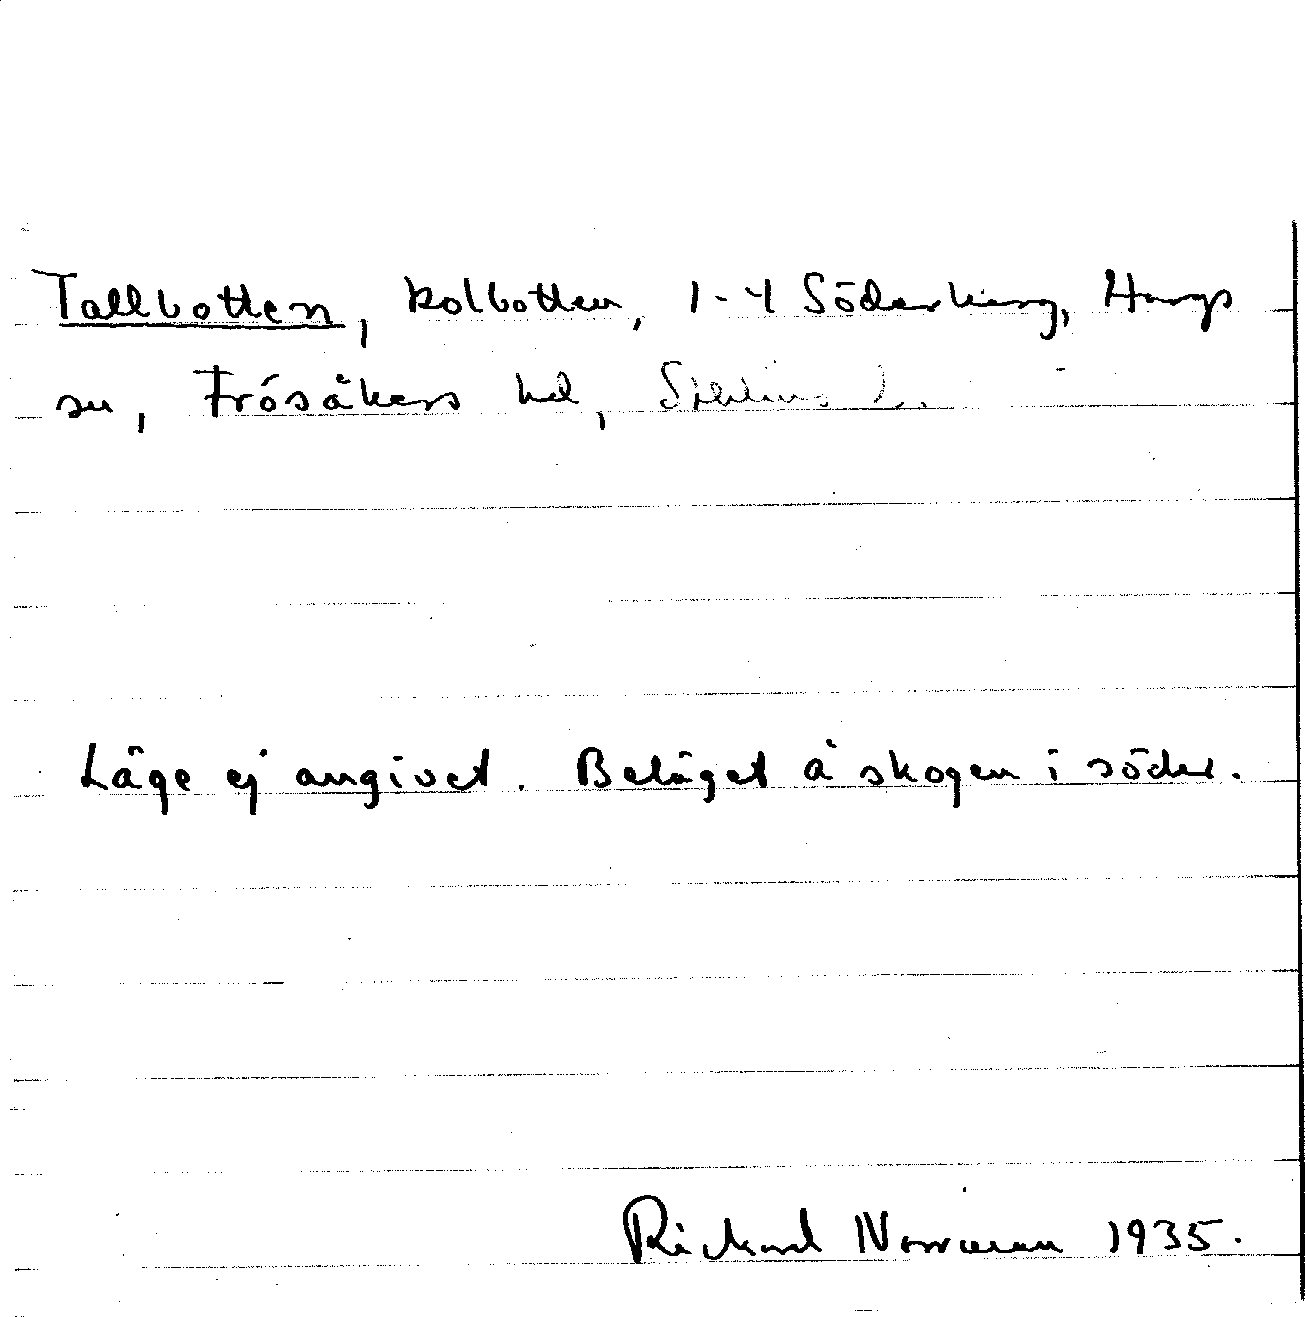 Tallbotten, kolbotten, 1-4 Söderby, Hargs
sn, Frösåkers hd, Sthlms l.
Läge ej angivet. Beläget å skogen i söder.
Rickard Norrman 1935.